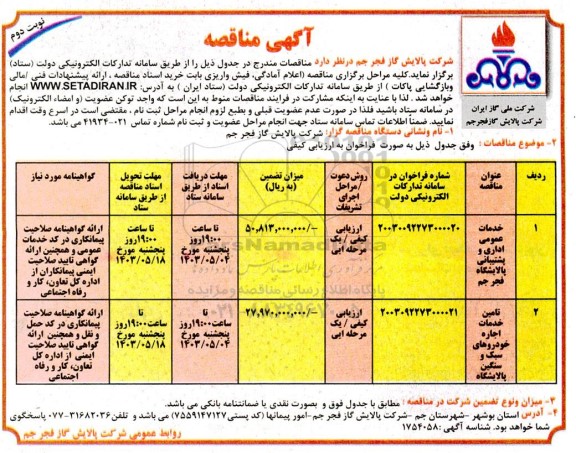 نوبت دوم
آگهی مناقصه
شرکت ملی گاز ایران
شرکت پالایش گاز فجر جم
شرکت پالایش گاز فجر جم درنظر دارد مناقصات مندرج در جدول ذیل را از طریق سامانه تدارکات الکترونیکی دولت (ستاد)
برگزار نماید.کلیه مراحل برگزاری مناقصه (اعلام آمادگی، فیش واریزی بابت خرید اسناد مناقصه ، ارائه پیشنهادات فنی /مالی
و بازگشایی پاکات ) از طریق سامانه تدارکات الکترونیکی دولت (ستاد ایران ) به آدرس: WWW.SETADIRAN.IR انجام
خواهد شد . لذا با عنایت به اینکه مشارکت در فرایند مناقصات منوط به این است که واجد توکن عضویت (و امضاء الکترونیک)
در سامانه ستاد باشید فلذا در صورت عدم عضویت قبلی و بطبع لزوم انجام مراحل ثبت نام ، مقتضی است در اسرع وقت اقدام
نمایید. ضمناً اطلاعات تماس سامانه ستاد جهت انجام مراحل عضویت و ثبت نام شماره تماس ۰۲۱-۴۱۹۳۴ می باشد.
۱- نام ونشانی دستگاه مناقصه گزار: شرکت پالایش گاز فجر جم
۲- موضوع مناقصات : وفق جدول ذیل به صورت فراخوان به ارزیابی کیفی
ردیف
عنوان مناقصه
شماره فراخوان در سامانه تدارکات الکترونیکی دولت
روش دعوت /مراحل اجرای تشریفات
میزان تضمین (به ریال)
مهلت دریافت اسناد از طریق سامانه ستاد
مهلت تحویل اسناد مناقصه از طریق سامانه ستاد
گواهینامه مورد نیاز
۱
خدمات عمومی اداری و پشتیبانی پالایشگاه فجر جم
۲۰۰۳۰۹۲۲۷۳۰۰۰۰۲۰
ارزیابی کیفی / یک مرحله ایی
۵۰,۸۱۳,۰۰۰,۰۰۰/-
تا ساعت ۱۹:۰۰روز پنجشنبه مورخ ۱۴۰۳/۰۵/۰۴
تا ساعت ۱۹:۰۰روز پنجشنبه مورخ ۱۴۰۳/۰۵/۱۸
ارائه گواهینامه صلاحیت پیمانکاری در کد خدمات عمومی و همچنین ارائه گواهی تایید صلاحیت ایمنی پیمانکاران از اداره کل تعاون، کار و رفاه اجتماعی
۲
تامین اجاره خودروهای سبک و سنگین پالایشگاه
۲۰۰۳۰۹۲۲۷۳۰۰۰۰۲۱
ارزیابی کیفی / یک مرحله ایی
۲۷,۹۷۰,۰۰۰,۰۰۰/-
تا ساعت۱۹:۰۰روز پنجشنبه مورخ ۱۴۰۳/۰۵/۰۴
تا ساعت۱۹:۰۰روز پنجشنبه مورخ ۱۴۰۳/۰۵/۱۸
ارائه گواهینامه صلاحیت پیمانکاری در کد حمل و نقل و همچنین ارائه گواهی تایید صلاحیت ایمنی از اداره کل تعاون، کار و رفاه اجتماعی
۳- میزان ونوع تضمین شرکت در مناقصه : مطابق با جدول فوق و بصورت نقدی یا ضمانتنامه بانکی می باشد.
۴- آدرس استان بوشهر -شهرستان جم -شرکت پالایش گاز فجر جم -امور پیمانها (کد پستی ۷۵۵۹۱۴۷۱۲۷) می باشد و تلفن ۰۷۷-۳۱۶۸۲۰۳۶ پاسخگوی
شما خواهد بود. شناسه آگهی :۱۷۵۴۰۵۸
روابط عمومی شرکت پالایش گاز فجر جم